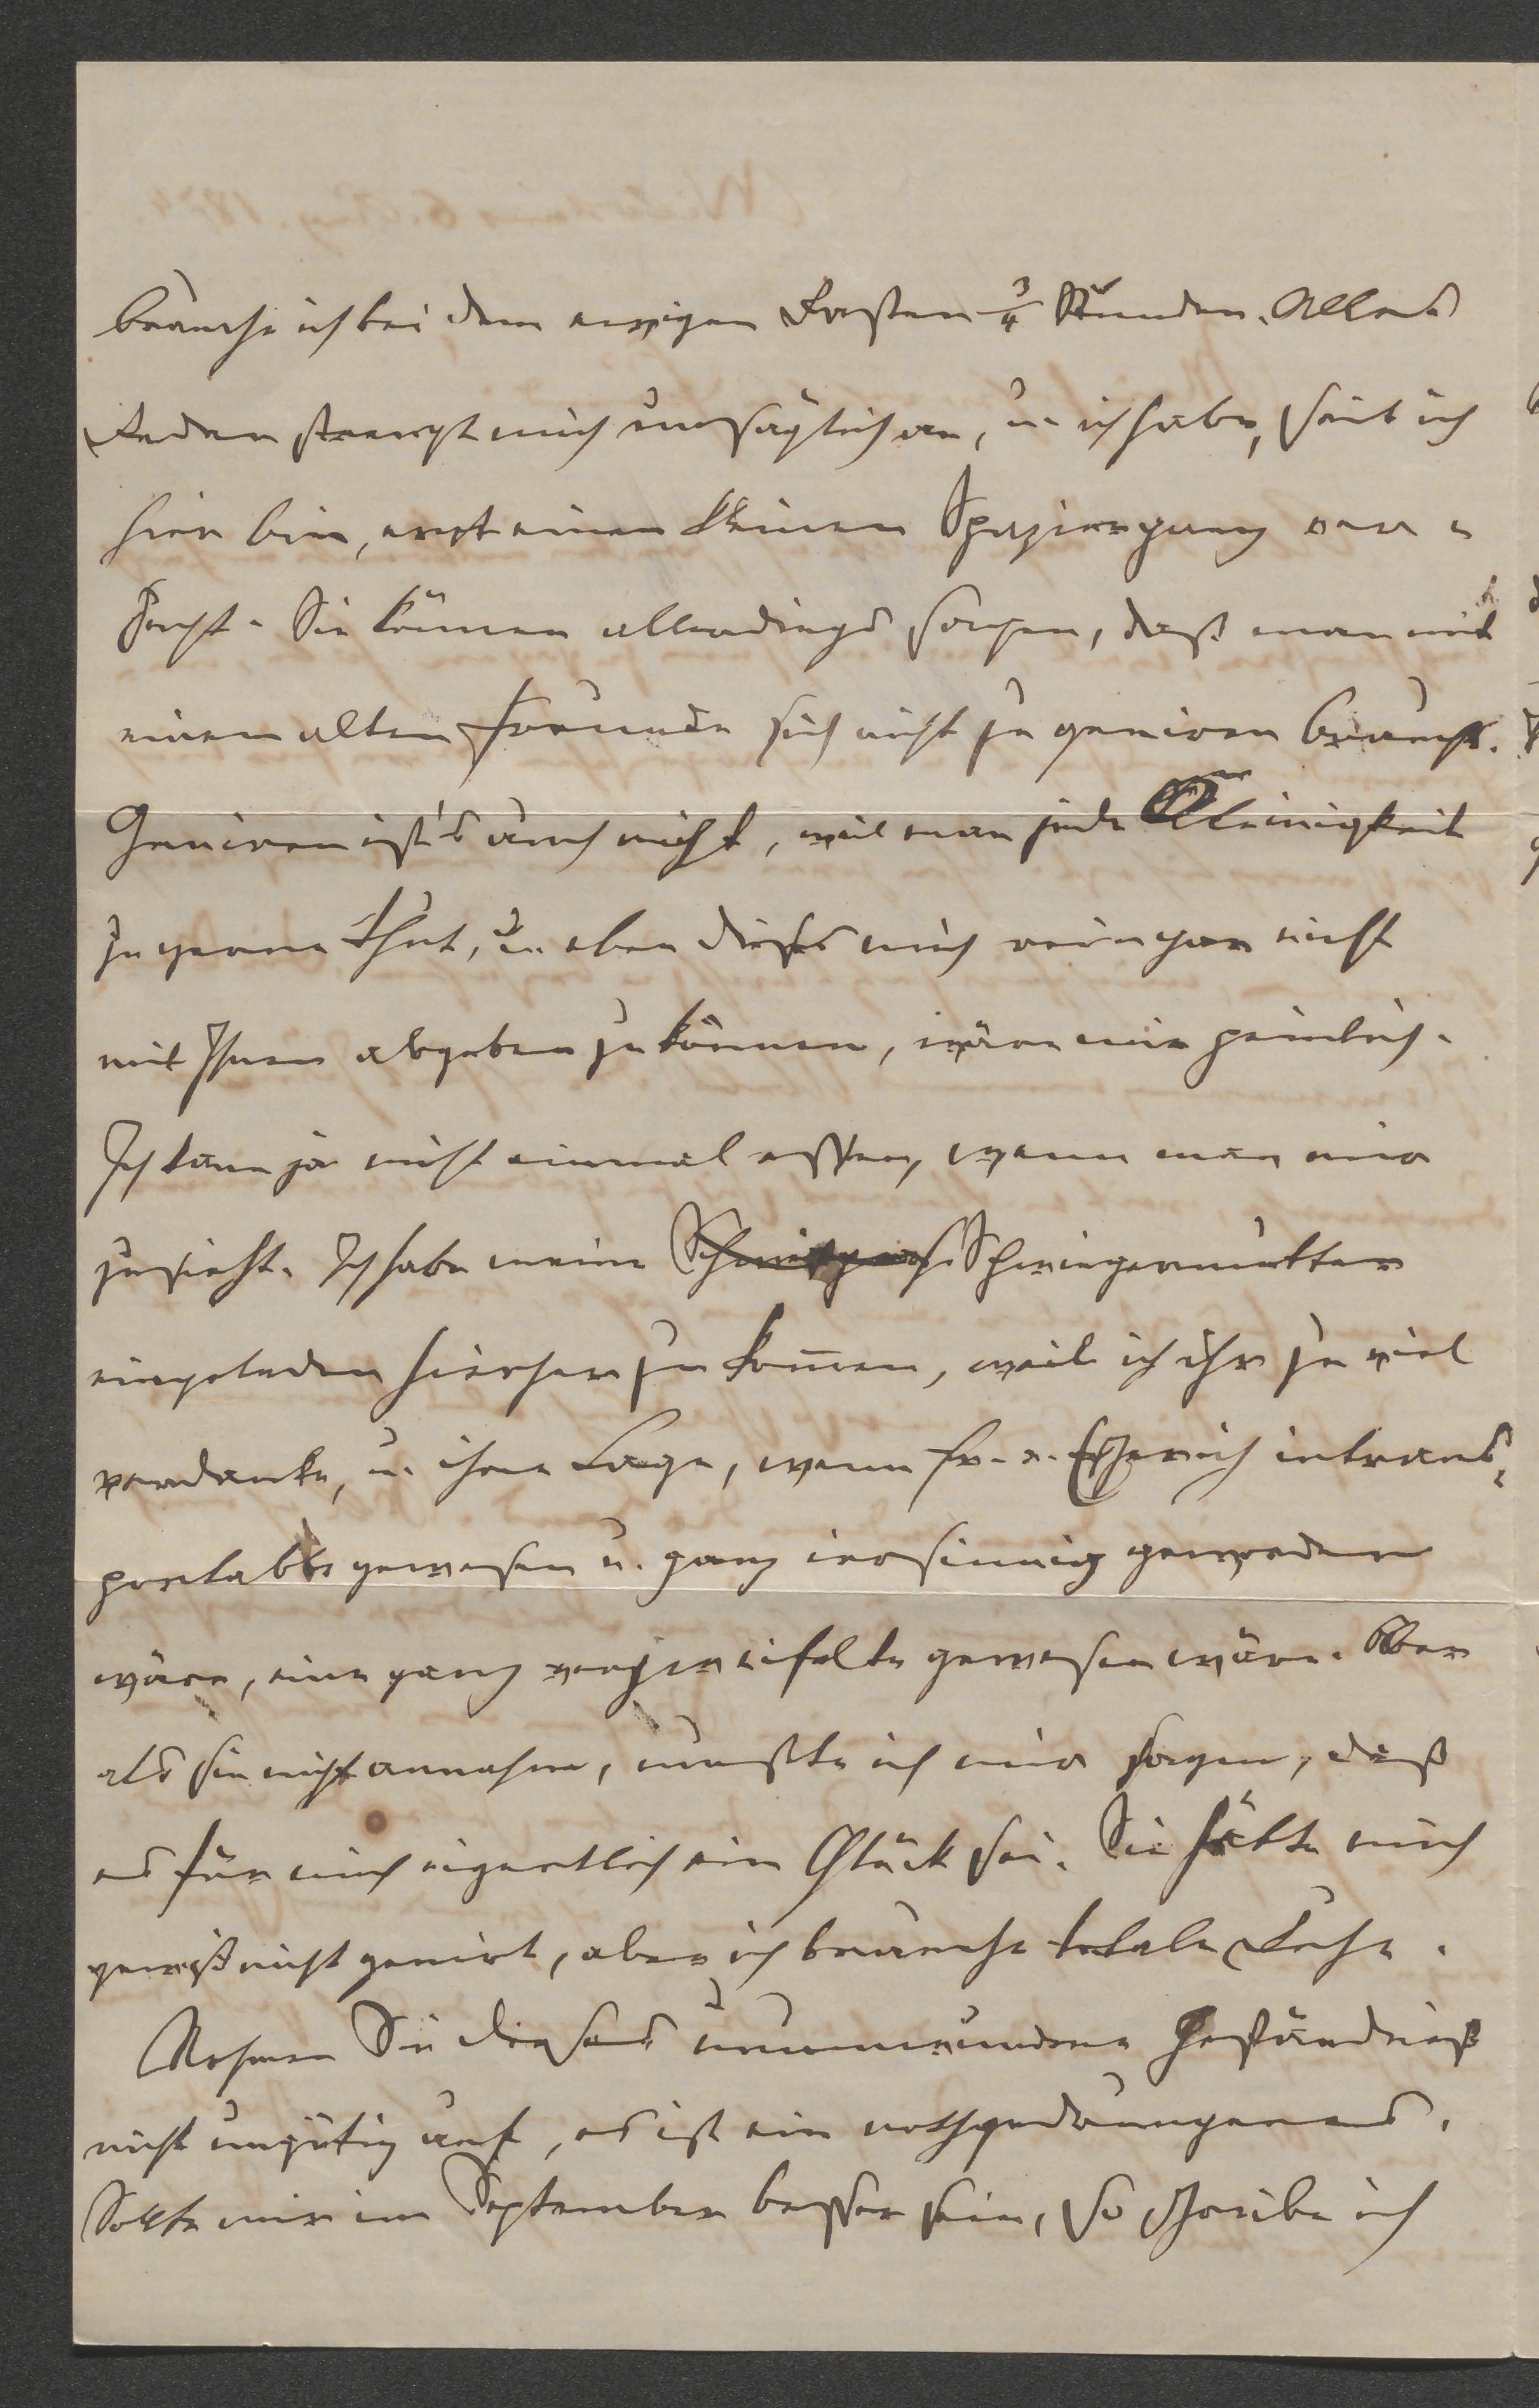 brauche ich bei dem ewigen Rasten 3/4 Stunden. Alles
Reden strengt mich unsäglich an, u. ich habe, seit ich
hier bin, erst einen kleinen Spaziergang ver-
sucht. Sie können allerdings sagen, daß man mit
einem alten Freunde sich nicht zu geniren braucht.
Geniren ist's auch nicht, weil man jede Kleinigkeit
zu gerne thut, u. eben dieses mich rein gar nicht
mit Ihnen abgeben zu können, wäre mir peinlich.
Ich kann ja nicht einmal essen, wenn man mir
zusieht. Ich habe meine Schwiegermutter
eingeladen hierher zu kom̄en, weil ich ihr zu viel
verdanke, u. ihre Lage, wenn Fr. v. intrans-
portabel gewesen u. ganz irrsinnig geworden
wäre, eine ganz verzweifelte gewesen wäre. Aber
als sie nicht annahm, mußte ich mir sagen, daß
es für mich eigentlich ein Glück sei. Sie hätte mich
gewiß nicht genirt, aber ich brauche totale Ruhe.
Nehmen Sie dieses unumwundene Geständniß
nicht ungütig auf, es ist ein nothgedrungenes.
Sollte mir im September besser sein, so schreibe ich